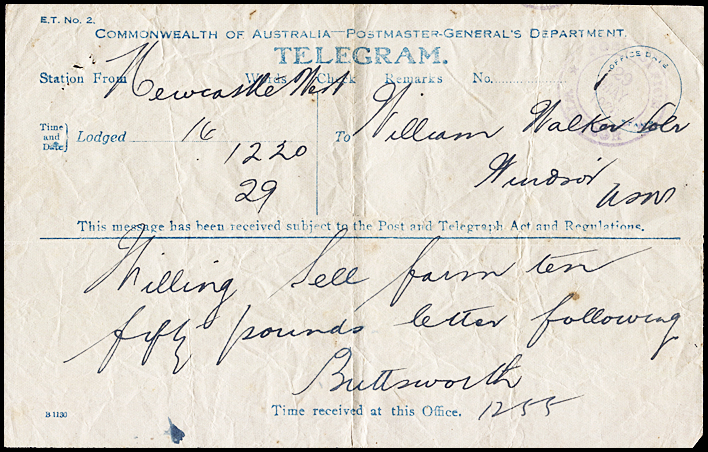 E.T. No. 2.
COMMONWEALTH OF AUSTRALIA—POSTMASTER-GENERAL'S DEPARTMENT.
TELEGRAM.
Station From Words Check Remarks No.
Newcastle West
OFFICE DATE
Time and Date} Lodged 16 To William Walker Solr
1220
Windsor
29 NSW
This message has been received subject to the Post and Telegraph Act and Regulations.
Willing Sell farm ten
fifty pounds letter following
Buttsworth
B 1130
Time received at this Office. 1255